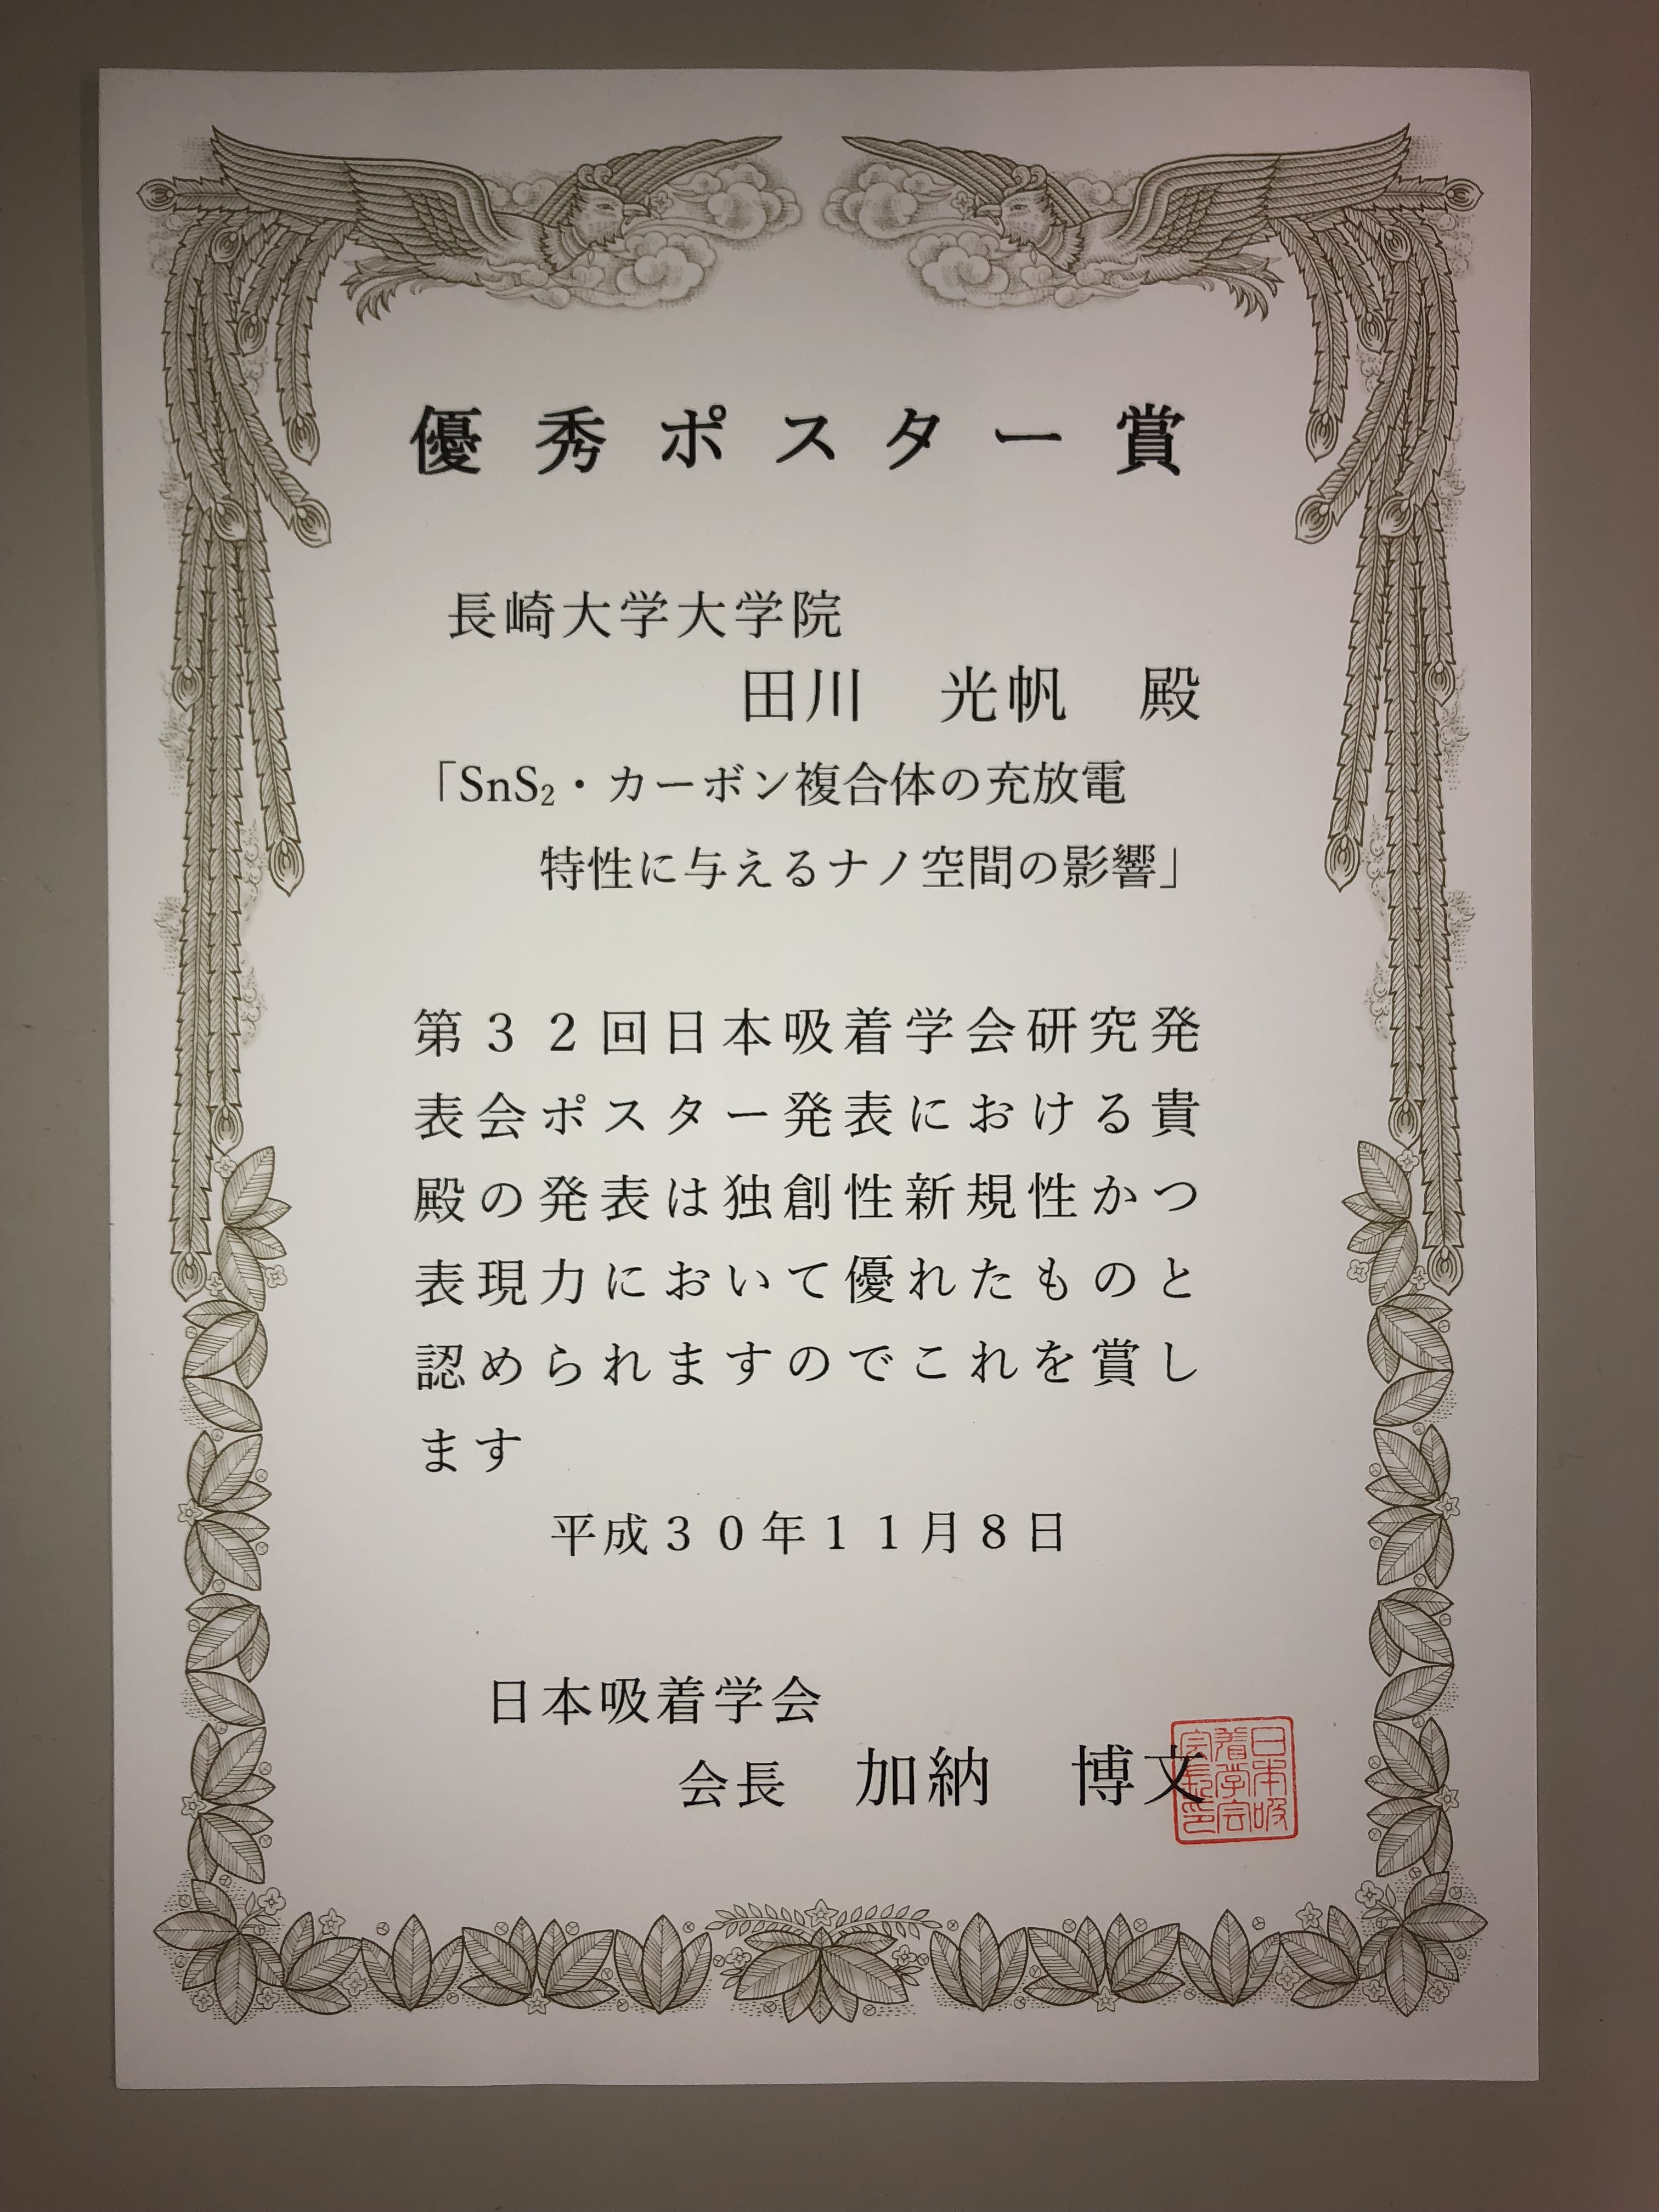 優秀ポスター賞
長崎大学大学院
田川　光帆　殿
「SnS₂・カーボン複合体の充放電
特性に与えるナノ空間の影響」
第３２回日本吸着学会研究発
表会ポスター発表における貴
殿の発表は独創性新規性かつ
表現力において優れたものと
認められますのでこれを賞し
ます
平成３０年１１月８日
日本吸着学会
会長　加納　博文
日本吸
着学会
会長印